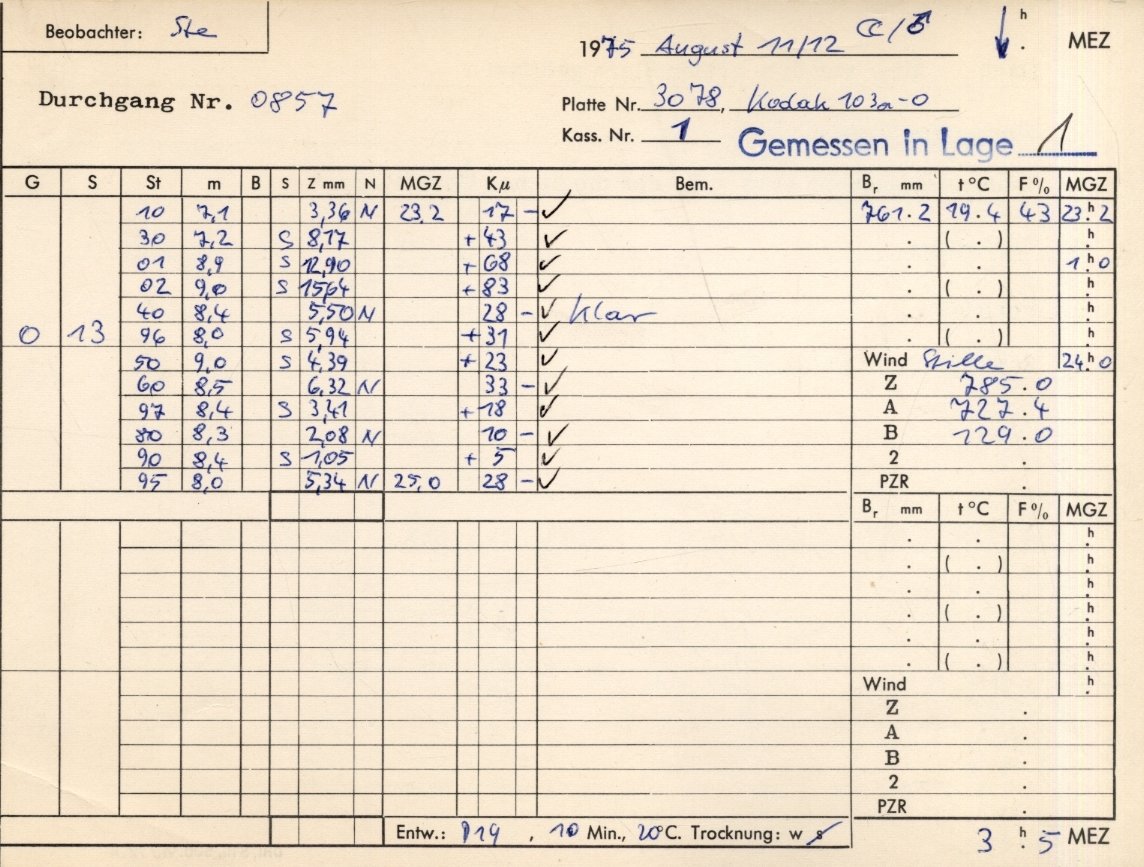 Beobachter: Ste
1975 August 11/12 h . MEZ
Durchgang Nr. 0857
Platte Nr. 3078, Kodak 103a-O
Kass. Nr. 1 Gemessen in Lage 1
G S St m B S Z mm N MGZ Kμ Bem. Br mm t °C F % MGZ
10 7,1 3,36 N 23,2 17 – ✓ 761.2 19.4 43 23.h2
30 7,2 S 8,17 + 43 ✓ . ( . ) .h
01 8,9 S 12,90 + 68 ✓ . . 1.h0
02 9,0 S 15,64 + 83 ✓ . ( . ) .h
40 8,4 5,50 N 28 – ✓ Klar . . .h
0 13 96 8,0 S 5,94 + 31 ✓ . ( . ) .h
50 9,0 S 4,39 + 23 ✓ Wind Stille 24.h0
60 8,5 6,32 N 33 – ✓ Z 785.0
97 8,4 S 3,41 + 18 ✓ A 727.4
80 8,3 2,08 N 10 – ✓ B 129.0
90 8,4 S 1,05 + 5 ✓ 2 .
95 8,0 5,34 N 25,0 28 – ✓ PZR .
Br mm t °C F % MGZ
. . .h
. ( . ) .h
. . .h
. ( . ) .h
. . .h
. ( . ) .h
Wind .h
Z .
A .
B .
2 .
PZR .
Entw.: D19 , 10 Min., 20°C. Trocknung: w s 3 h. 5 MEZ